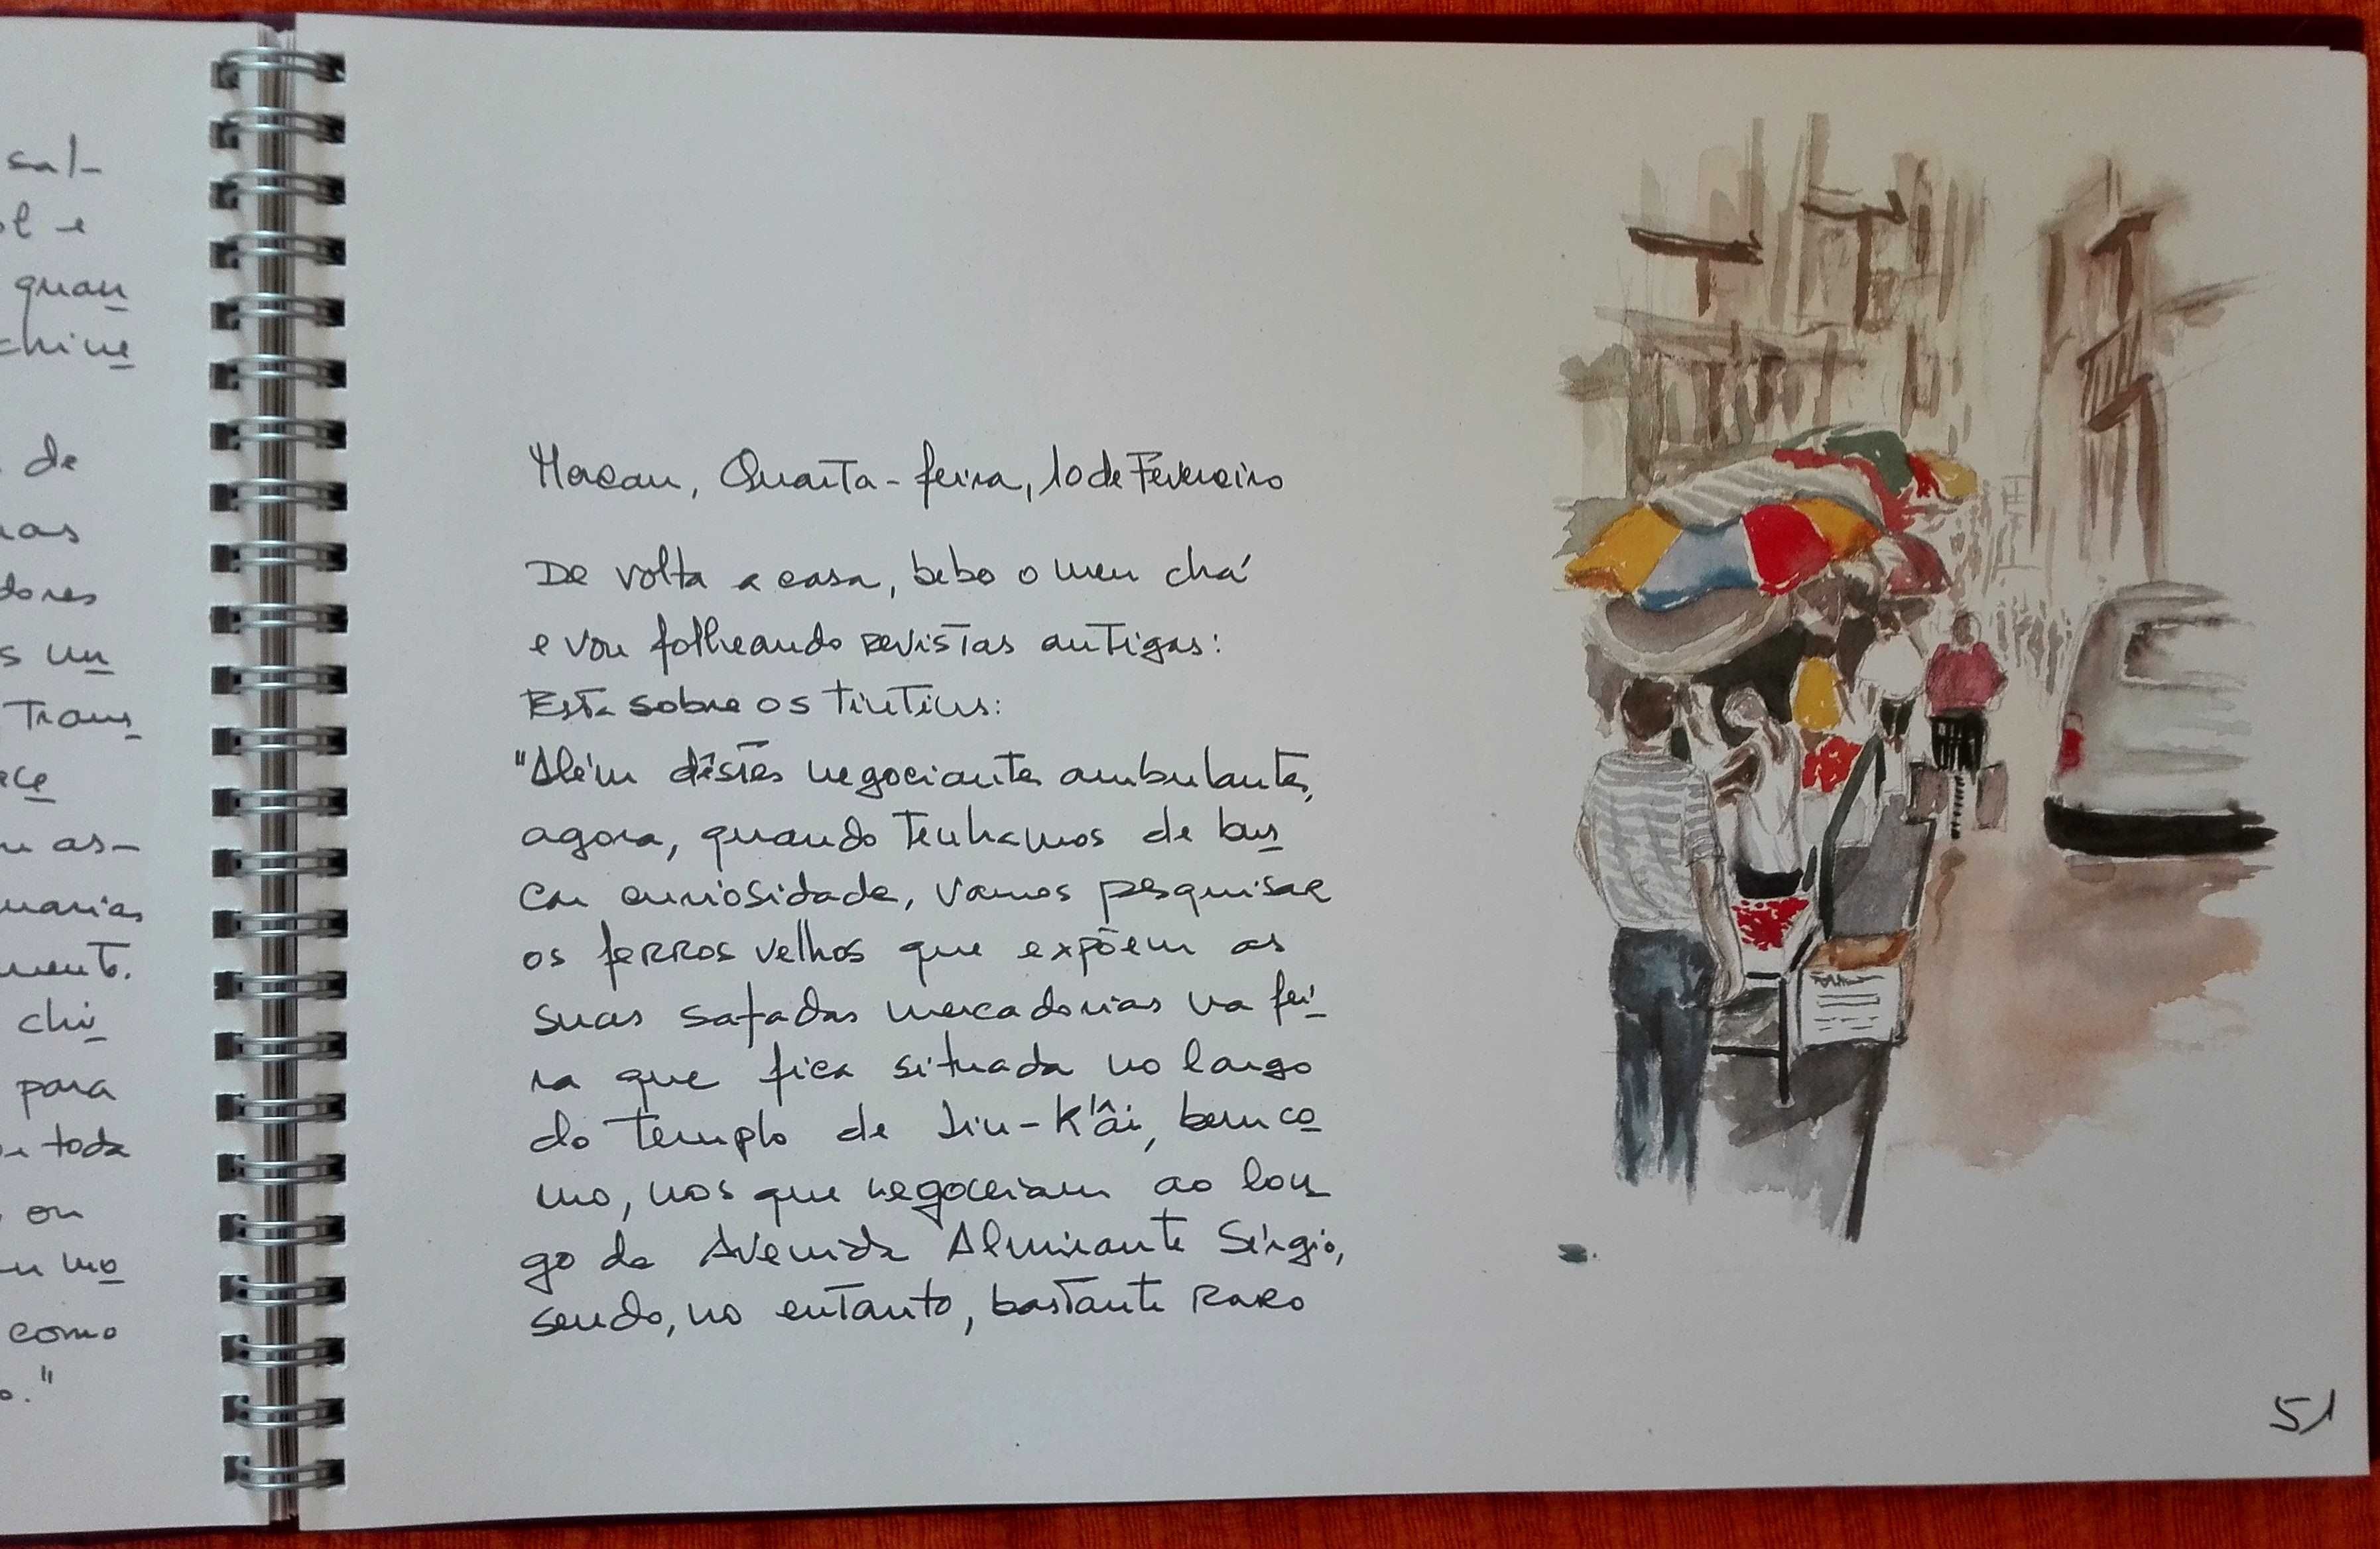 sal-
e
quan
chine
de
uas
dores
s un
Trans
ece
as-
uarias
mento.
chi
para
toda
ou
mo
como
o."
Macau, Quarta-feira, 10 de Fevereiro
De volta a casa, bebo o meu chá
e vou folheando revistas antigas:
Esta sobre os tintins:
"Além dêstes negociantes ambulantes,
agora, quando tenhamos de bus
car curiosidade, vamos pesquisar
os ferros velhos que expõem as
suas safadas mercadorias na fei
ra que fica situada no largo
do templo de Lin-K'âi, bem co
mo, nos que negoceiam ao lon
go da Avenida Almirante Sérgio,
sendo, no entanto, bastante raro
51